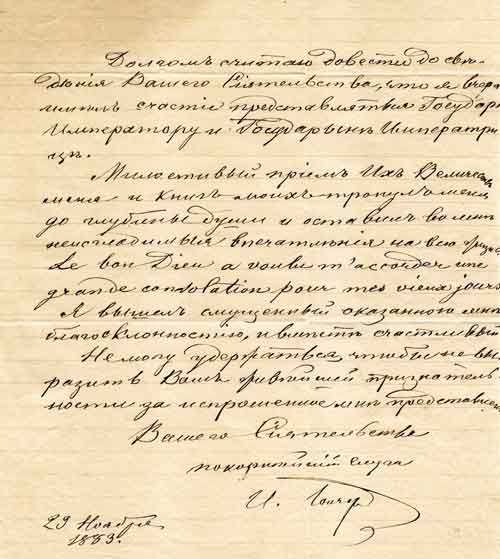 Долгомъ считаю довести до свѣ-
дѣнія Вашего Сіятельства, что я вчера
имѣлъ счастіе представляться Государю
Императору и Государынѣ Императри-
цѣ.
Милостивый пріемъ Ихъ Величествами
меня и книгъ моихъ тронулъ меня
до глубины души и оставилъ во мнѣ
неизгладимыя впечатлѣнія на всю жизнь.
Le bon Dieu a voulu m'accorder une
grande consolation pour mes vieux jours.
Я вышелъ смущенный оказанною мнѣ
благосклонностію, и вмѣстѣ счастливый
Не могу удержаться, чтобы не вы-
разить Вамъ живѣйшей признатель-
ности за испрошенное мнѣ представленіе
Вашего Сіятельства
покорнѣйшій слуга
И. Гончар
29 Ноября
1883.